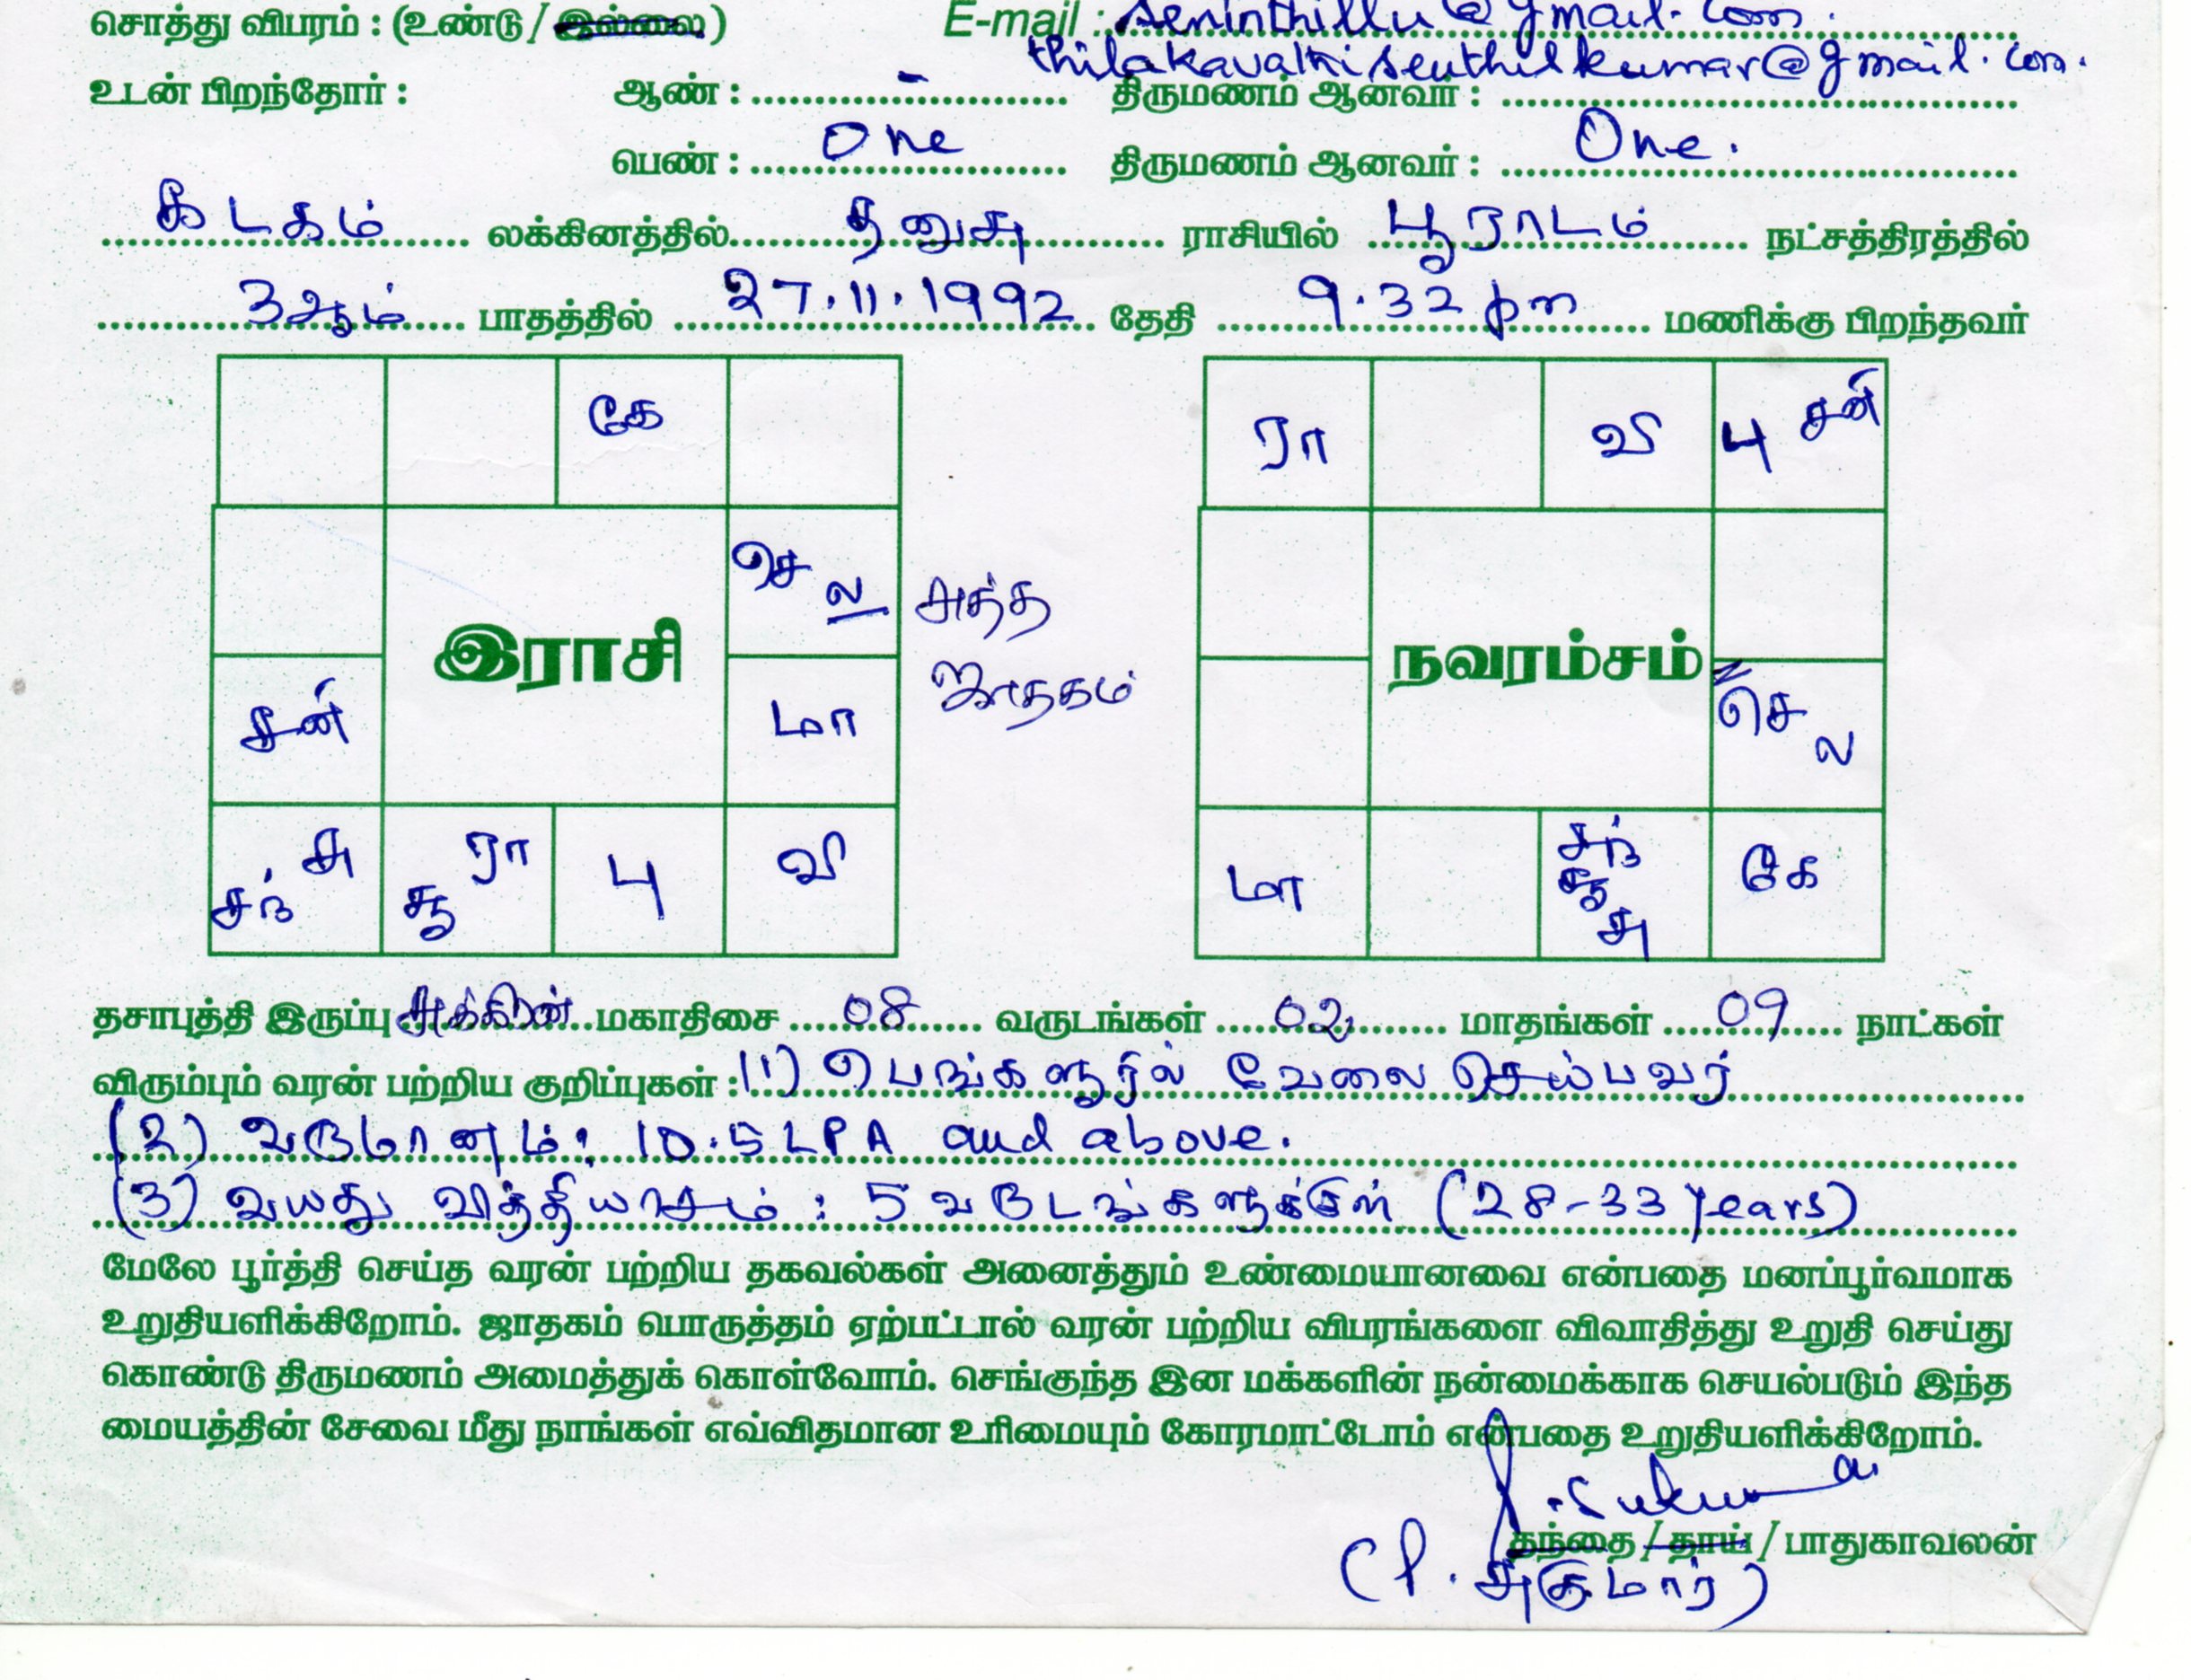 சொத்து விபரம் : (உண்டு / இல்லை) E-mail : seninthillu@gmail.com.
thilakavathisenthilkumar@gmail.com.
உடன் பிறந்தோர் : ஆண் : - திருமணம் ஆனவர் :
பெண் : One திருமணம் ஆனவர் : One.
கடகம் லக்கினத்தில் தனுசு ராசியில் பூராடம் நட்சத்திரத்தில்
3ஆம் பாதத்தில் 27.11.1992 தேதி 9.32 pm மணிக்கு பிறந்தவர்
கே
செ ல
இராசி
சன் மா
சந் சு சூ ரா பு வி
அத்த
ஜாதகம்
ரா வி பு சனி
நவரம்சம்
செ ல
மா சந் சூ சு கே
தசாபுத்தி இருப்பு சுக்கிரன் மகாதிசை 08 வருடங்கள் 02 மாதங்கள் 09 நாட்கள்
விரும்பும் வரன் பற்றிய குறிப்புகள் : (1) பெங்களூரில் வேலை செய்பவர்
(2) வருமானம் : 10.5 LPA and above.
(3) வயது வித்தியாசம் : 5 வருடங்களுக்குள் (28-33 years)
மேலே பூர்த்தி செய்த வரன் பற்றிய தகவல்கள் அனைத்தும் உண்மையானவை என்பதை மனப்பூர்வமாக
உறுதியளிக்கிறோம். ஜாதகம் பொருத்தம் ஏற்பட்டால் வரன் பற்றிய விபரங்களை விவாதித்து உறுதி செய்து
கொண்டு திருமணம் அமைத்துக் கொள்வோம். செங்குந்த இன மக்களின் நன்மைக்காக செயல்படும் இந்த
மையத்தின் சேவை மீது நாங்கள் எவ்விதமான உரிமையும் கோரமாட்டோம் என்பதை உறுதியளிக்கிறோம்.
தந்தை / தாய் / பாதுகாவலன்
(P. சுகுமார்)